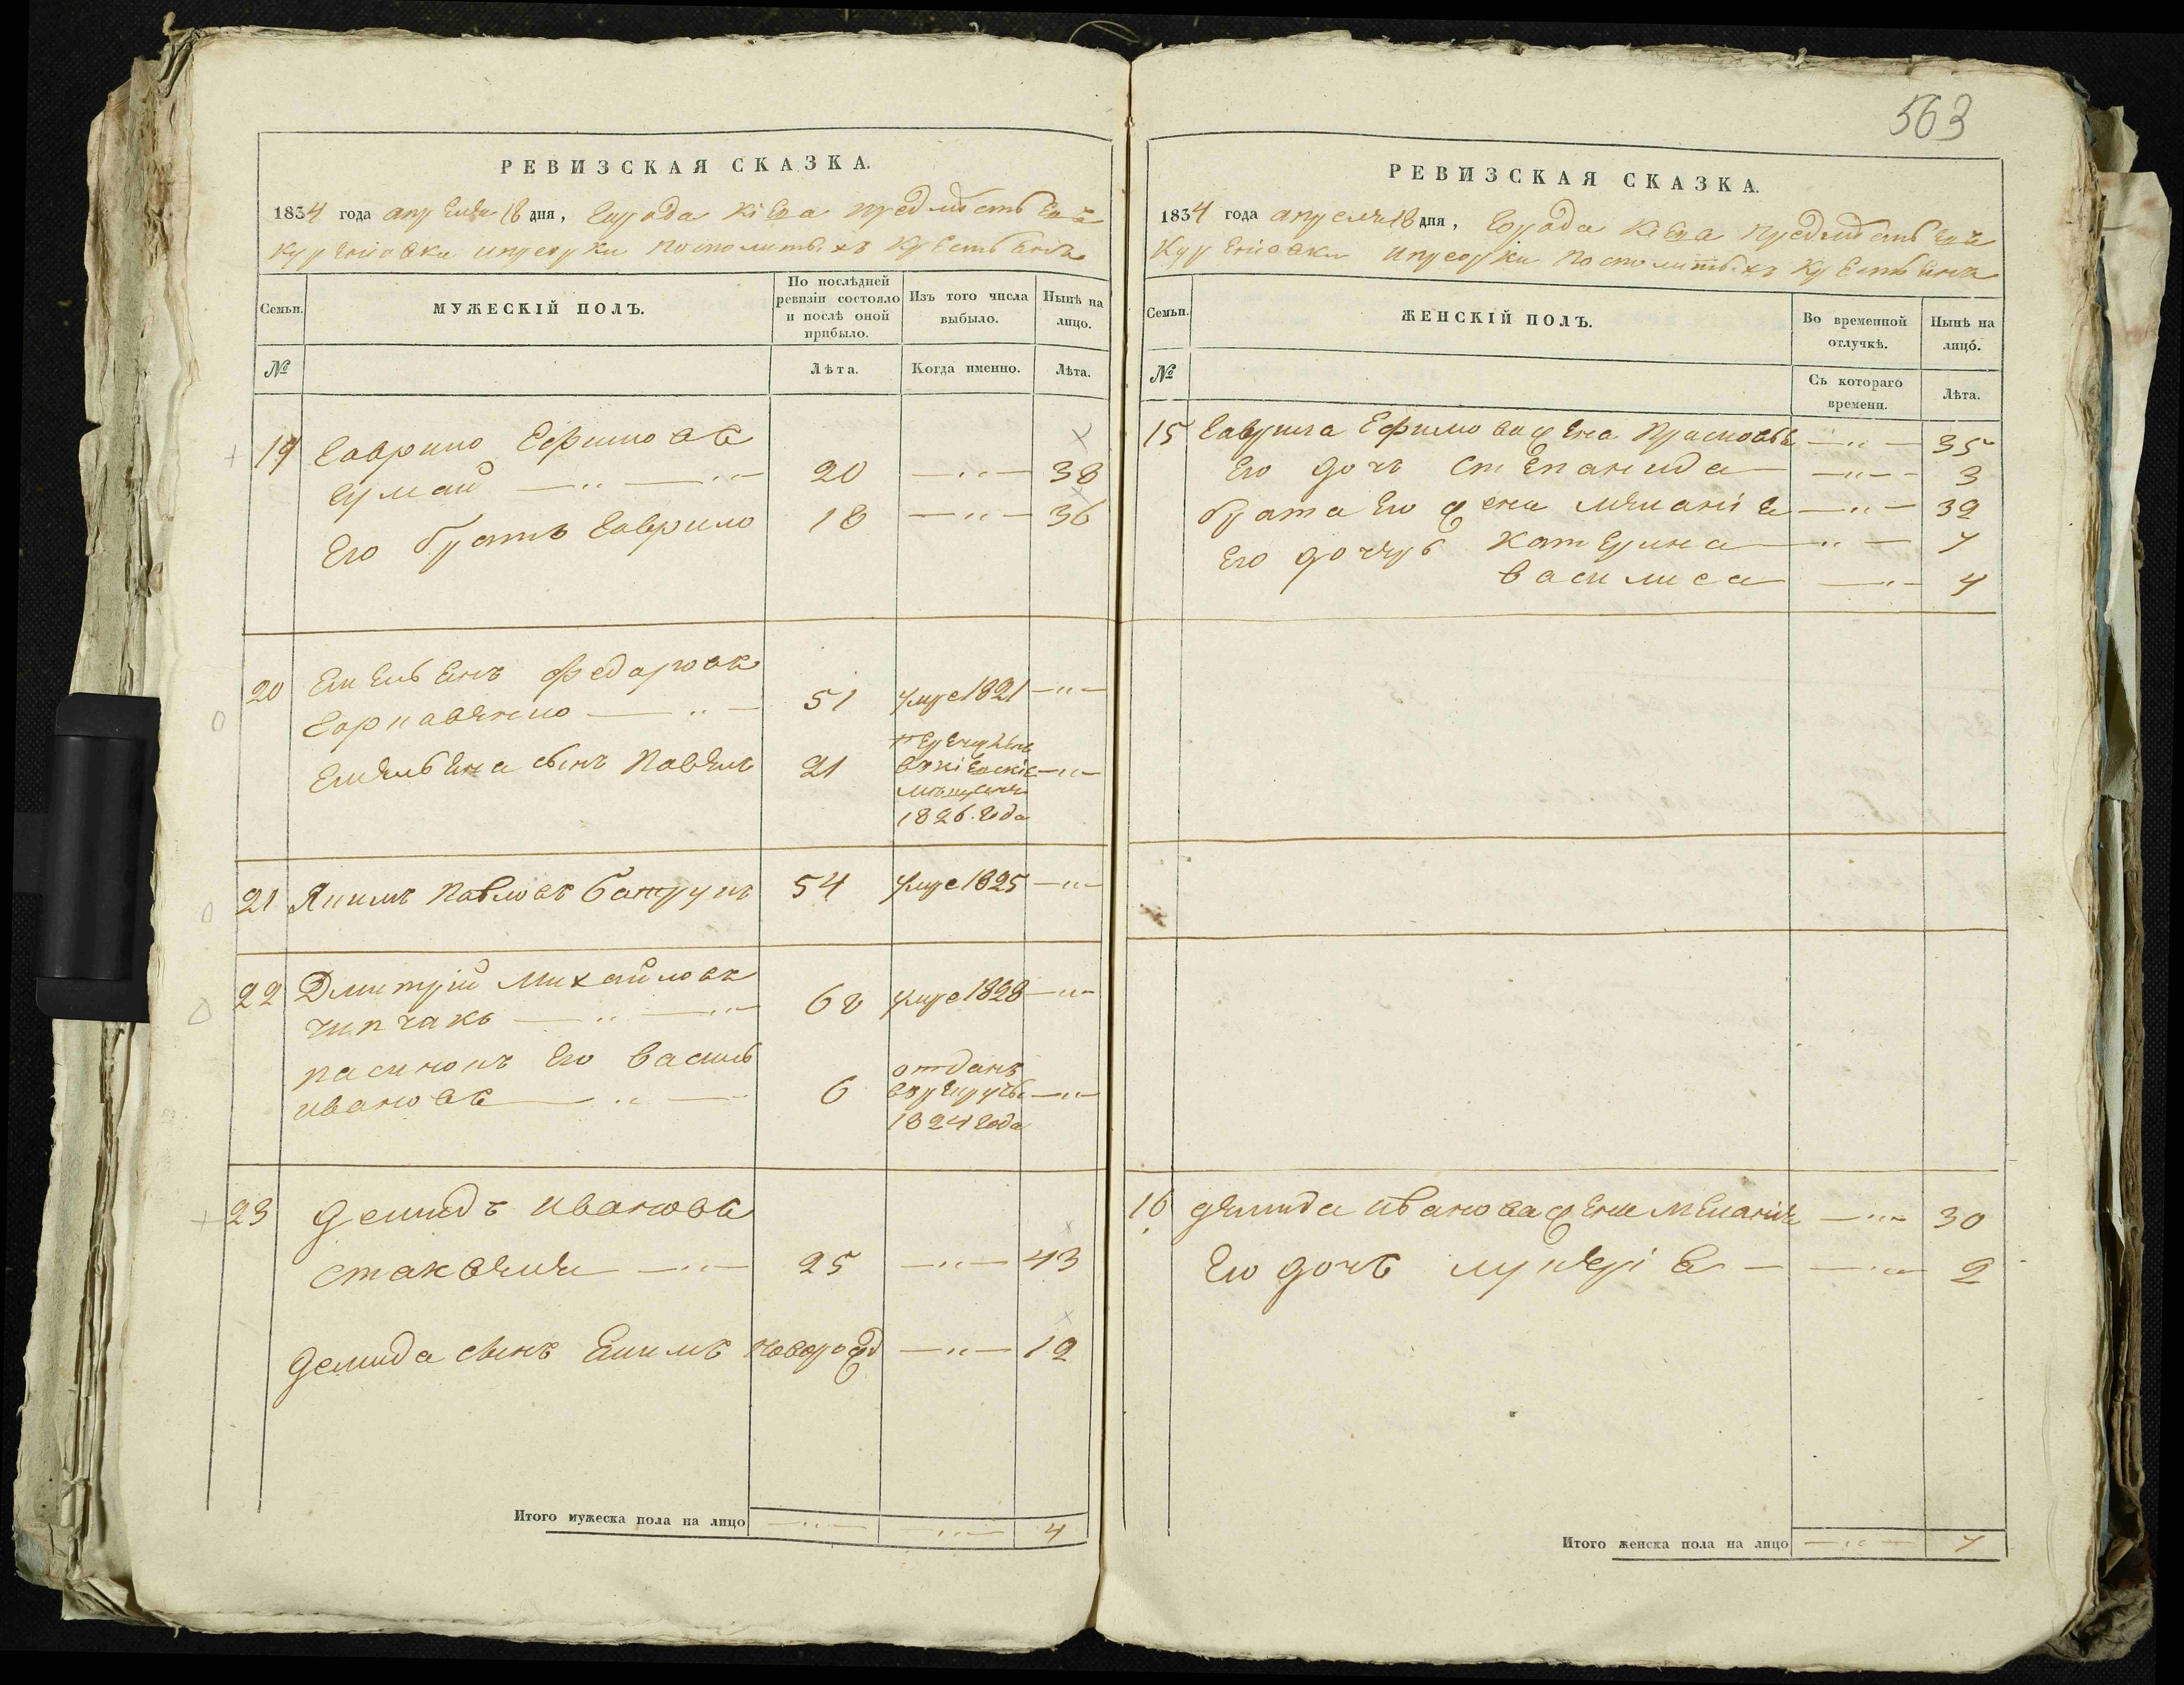 563
РЕВИЗСКАЯ СКАЗКА.
1834 года апреля 18 дня, города Кіева предмѣстьевъ
Куреніовки и Пріорки посполитыхъ крестьянъ
Семьи.
МУЖЕСКІЙ ПОЛЪ.
По послѣдней ревизіи состояло и послѣ оной прибыло.
Изъ того числа выбыло.
Нынѣ на лицо.
№
Лѣта.
Когда именно.
Лѣта.
19 Гаврило Ефимовъ
20 — 38
Его братъ Гаврило 18 — 36
20 Емельянъ Федоровъ
51 умре 1821 —
Емельяна сынъ Павелъ 21
въ кіевскіе
мѣщане
1826. года
21 Якимъ Павловъ 54 умре 1825 —
22 Дмитрій Михайловъ
Чипчакъ — 68 умре 1828 —
пасинокъ Его Василь
Ивановъ — 6
отданъ
в рекруты
1824 года
23 Демидъ Ивановъ
25 — 43
Демида сынъ Екимъ новорожд — 12
Итого мужеска пола на лицо — — 4
РЕВИЗСКАЯ СКАЗКА.
1834 года апреля 18 дня, города Кіева предмѣстьевъ
Куреніовки и Пріорки посполитыхъ крестьянъ
Семьи.
ЖЕНСКІЙ ПОЛЪ.
Во временной отлучкѣ.
Нынѣ на лицо.
№
Съ котораго времени.
Лѣта.
15 Гаврила Ефимова жена — 35
Его дочь Степанида — 3
брата Его жена Меланія — 32
Его дочери Катерина — 7
Василиса — 4
16 Демида Иванова жена Меланія — 30
Его дочь Лукерія — 2
Итого женска пола на лицо — 7